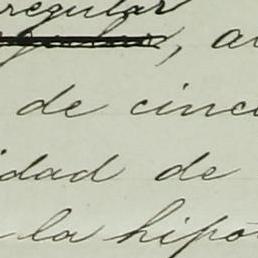 regular
, a
de cinc
idad de
la hipo